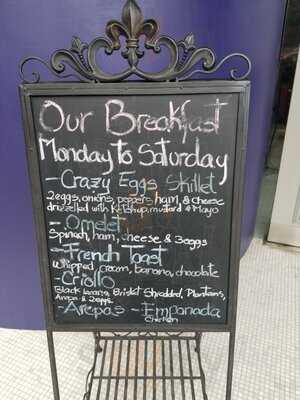 Our Breakfast
Monday to Saturday
- Crazy Eggs Skillet
2 eggs, onions, peppers, ham & cheese
drizzelled with Ketchup, mustard & Mayo
- Omelet
Spinach, ham, cheese & 3 eggs
- French Toast
Whipped cream, banana, chocolate
- Criollo
Black beans, Brisket Shredded, Plantains,
Arepa & 2 eggs.
- Arepas - Empanada
Chicken